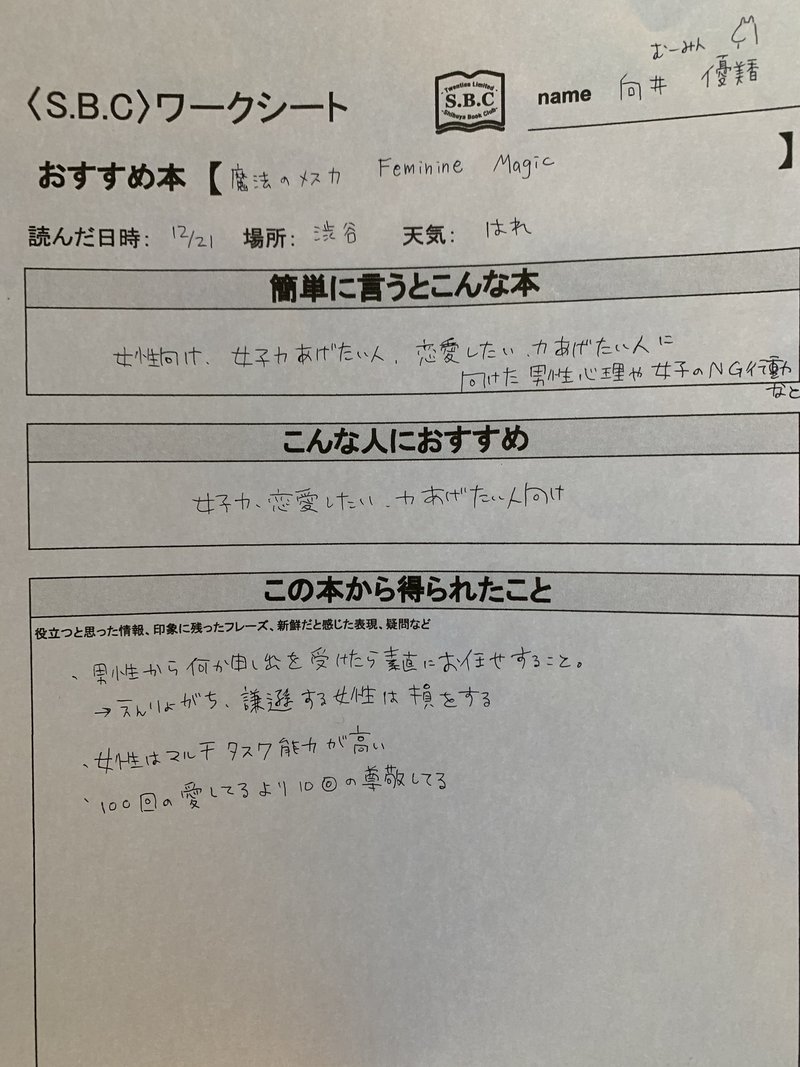 むーみん
〈S.B.C〉ワークシート
Twenties Limited
S.B.C
Shibuya Book Club
name 向井 優香
おすすめ本【魔法のメス力 Feminine Magic】
読んだ日時: 12/21 場所: 渋谷 天気: はれ
簡単に言うとこんな本
女性向け、女子力あげたい人、恋愛したい、力あげたい人に
向けた男性心理や女子のNG行動
など
こんな人におすすめ
女子力、恋愛したい、力あげたい人向け
この本から得られたこと
役立つと思った情報、印象に残ったフレーズ、新鮮だと感じた表現、疑問など
、男性から何か申し出を受けたら素直にお任せすること。
→えんりょがち、謙遜する女性は損をする
、女性はマルチタスク能力が高い
、100回の愛してるより10回の尊敬してる